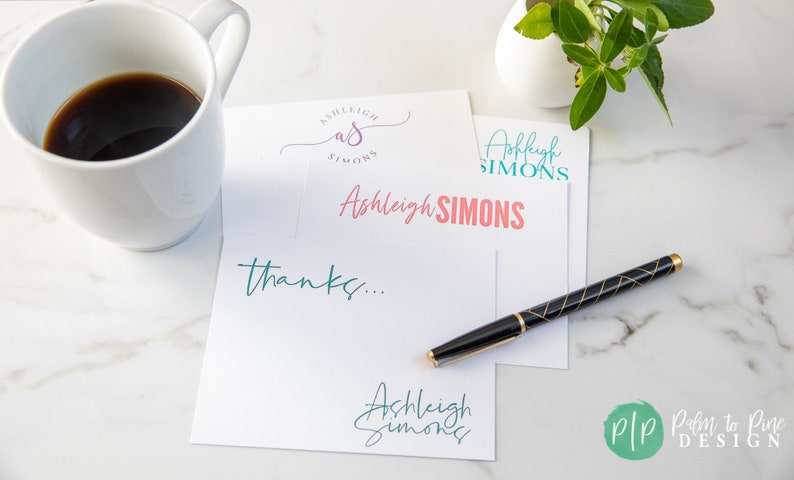 ASHLEIGH
as
SIMONS
Ashleigh
SIMONS
Ashleigh SIMONS
thanks...
Ashleigh
Simons
P|P
Palm to Pine
DESIGN